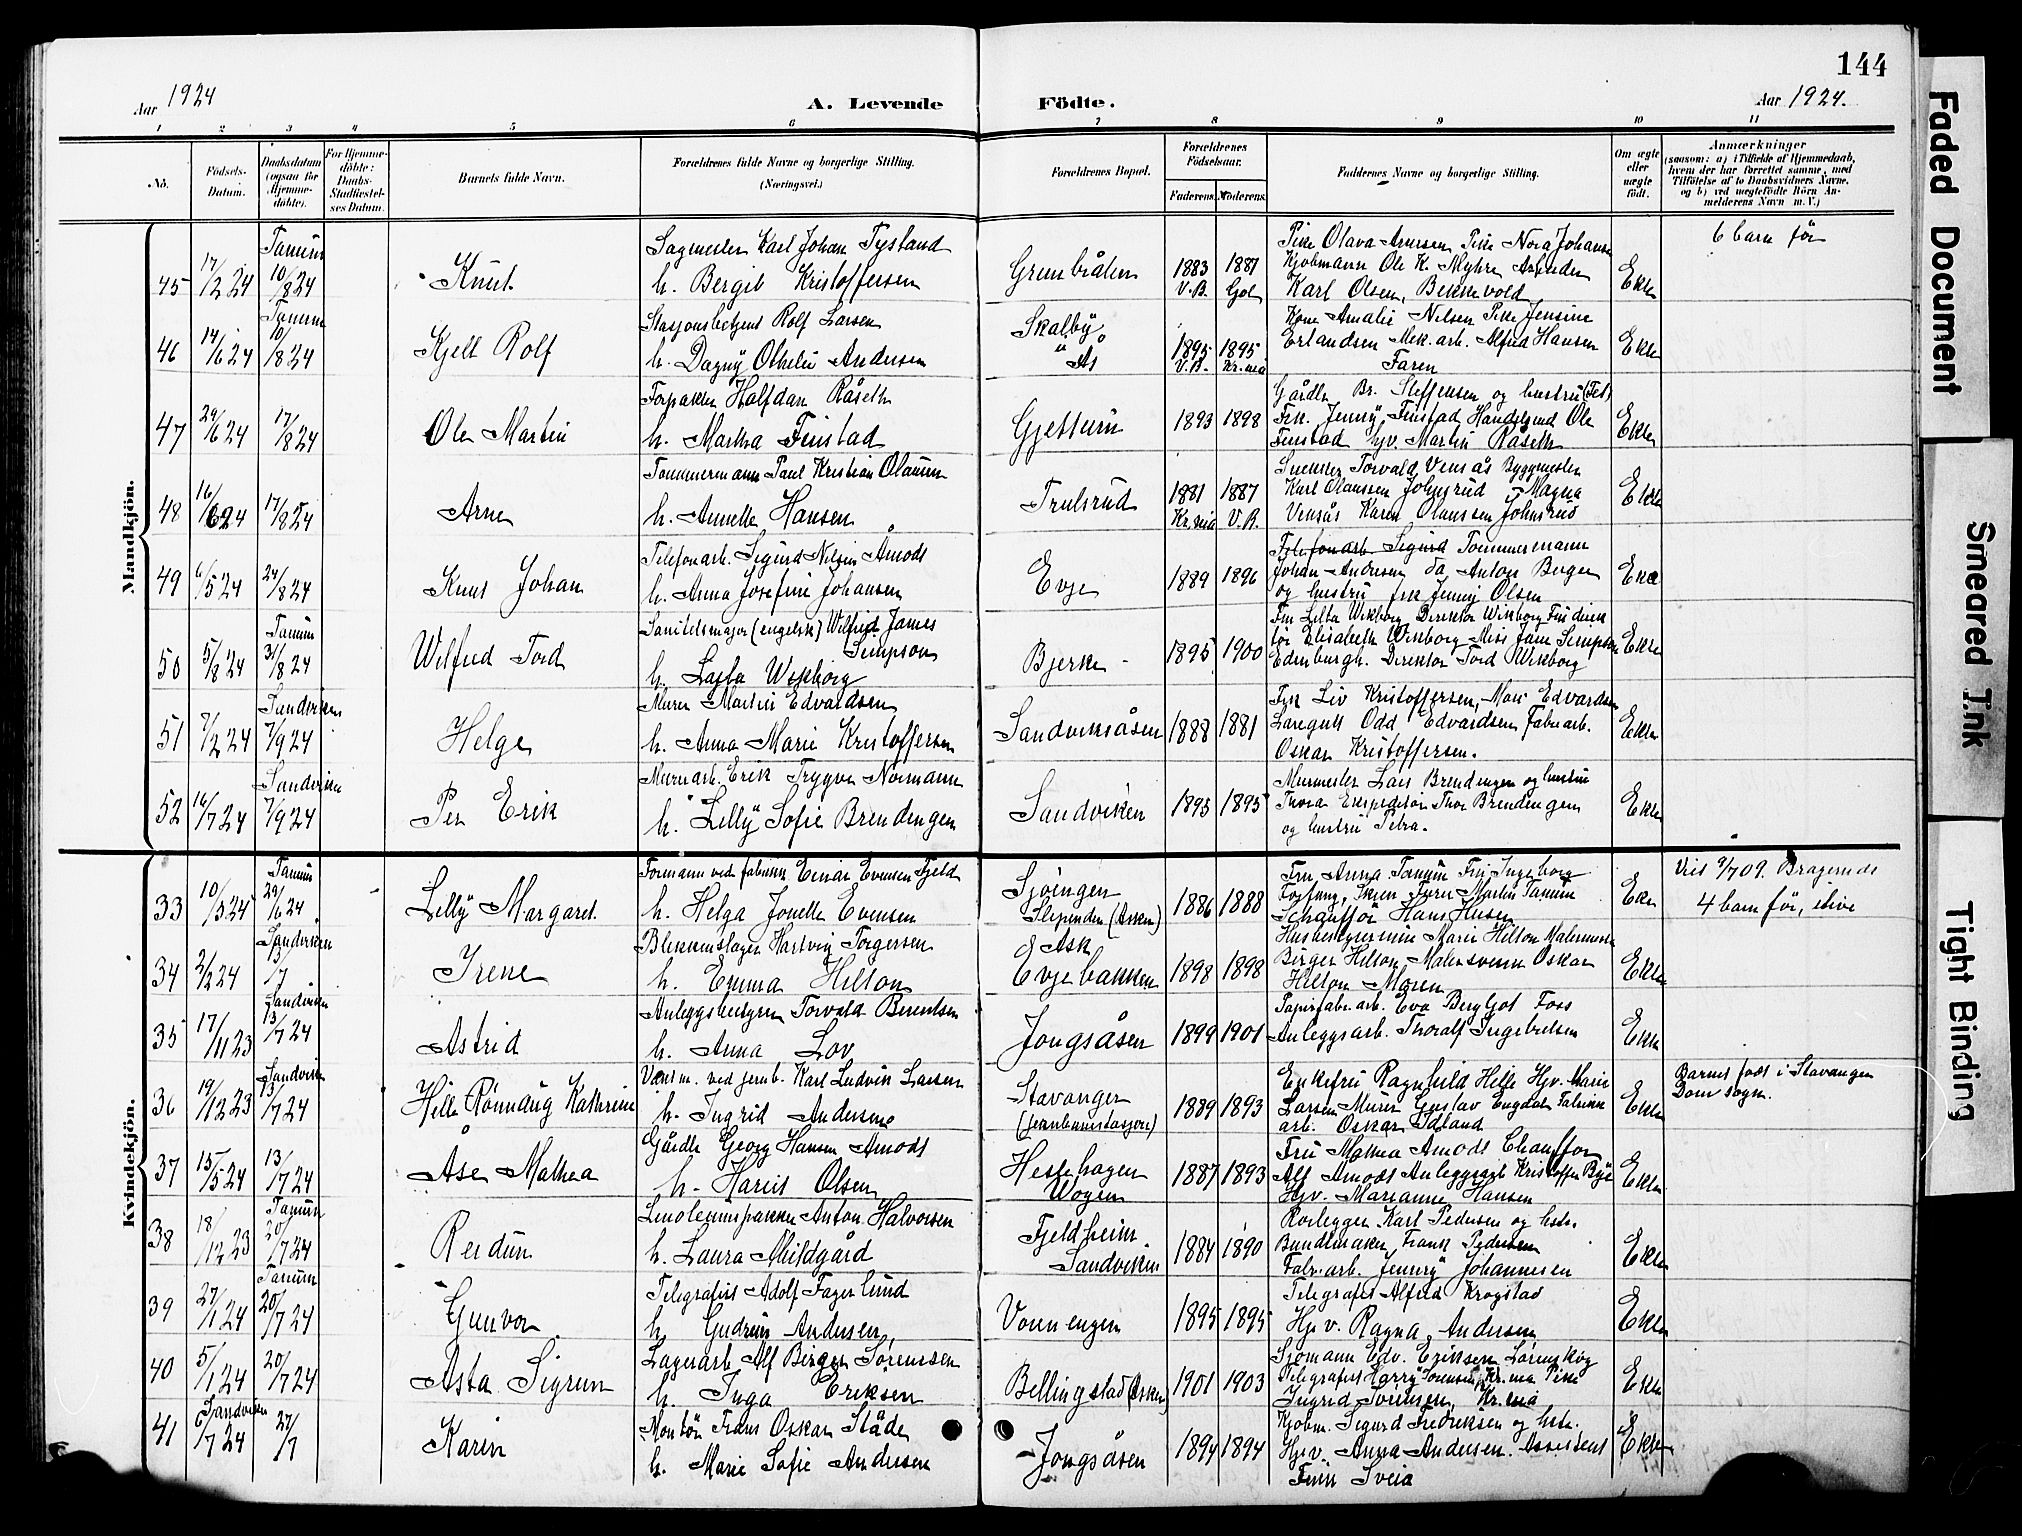 144
Aar 1924
A. Levende
Födte.
Aar 1924.
1 2 3 4 5 6 7 8 9 10 11
No.
Födsels-
Datum.
Daabsdatum
(ogsaa for
Hjemme-
døbte).
For Hjemme-
døbte:
Daabs-
Stadfæstel-
ses Datum.
Barnets fulde Navn.
Forældrenes fulde Navne og borgerlige Stilling.
(Næringsvei.)
Forældrenes Bopæl.
Forældrenes
Födselsaar.
Faderens. Moderens.
Faddernes Navne og borgerlige Stilling.
Om ægte
eller
uægte
födt.
Anmærkninger
(saasom: a) i Tilfælde af Hjemmedaab,
hvem der har forrettet samme, med
Tilföielse af to Daabsvidners Navne,
og b) ved uægtefödte Börn An-
melderens Navn m. V.)
Mandkjön.
45 17/2 24 Tanum 10/8 24 Knut
Sagmester Karl Johan Tystand
h. Bergit Kristoffersen
1883 V.B. 1881 Gol
Pike Nora Johanse
Kjøbmann Ole K. Myhre
Karl Olsen,
Ekte
6 barn før
46 14/6 24 Tanum 10/8 24 Kjell Rolf
Stasjonsbetjent Rolf Larsen
h. Dagny Othelie Andersen
Skalby
Ås
1895 V.B. 1895 Kr.nia
Kone Amalie Nilsen Pike Jensine
Erlandsen Mek. arb. Alfred Hansen
Faren
Ekte
47 29/6 24 17/8 24 Ole Martin
Forpakter Halfdan Råseth
h. Martha Finstad
Gjettum
1893 1898
Gårdbr. Br. Steffensen og hustru (Fet)
Frk. Jenny Finstad Ole
Finstad Hjv. Martin Råseth
Ekte
48 16/6 24 17/8 24 Arne
Tømmermann Paul Kristian Olaussen
h. Annette Hansen
Trulsrud
1881 Kr.nia 1887 V.B.
Snekker Torvald Vensås Byggmester
Karl Olaussen Johnsrud Magna
Vensås Karen Olaussen Johnsrud
Ekte
49 6/5 24 24/8 24 Knut Johan
Telefonarb. Sigurd Nilsen Åmods
h. Anna Josefine Johansen
Evje
1889 1896
Telefonarb. Sigurd Tømmermann
Johan Andersen da Anton Berger
og hustru frk Jenny Olsen
Ekte
50 5/8 24 Tanum 31/8 24 Wilfred Tord
Sanitetsmajor (engelsk) Wilfred James
Simpson
h. Lalla Wikborg
Bjerke
1895 1900
Direktør Wikborg
Elisabeth Wikborg Miss Jane Simpson
Edinburgh. Direktør Tord Wikborg
Ekte
51 7/2 24 Sandviken 7/9 24 Helge
Murer Martin Edvardsen
h. Anna Marie Kristoffersen
Sandviksåsen
1888 1881
Frk Liv Kristoffersen, Edvardsen
Odd Edvardsen, Fabr.arb.
Oskar Kristoffersen.
Ekte
52 16/7 24 Sandviken 7/9 24 Per Erik
Murerarb. Erik Trygve Normann
h. Lilly Sofie Brendengen
Sandviken
1893 1895
Murmester Lars Brendengen og hustru
Thora Ekspeditør Thor Brendengen
og hustru Petra.
Ekte
Kvindekjön.
33 10/3 24 Tanum 29/6 24 Lilly Margaret
Formann ved fabrikk Einar Evensen Fjeld
h. Helga Jonette Evensen
Slependen (Asker)
1886 1888
Fru Anna Tanum Frk Ingeborg
Martin Tanum
Schauffør Hans Husen
Ekte
Viet 9/7 09. Bragernes
4 barn før, i live
34 2/2 24 Sandviken 13/7 Irene
Blikkenslager Hartvig Torgersen
h. Emma Hilton
Ask
Evjebakken
1898 1898
Husbestyrerinne Marie Hilton
Birger Hilton Malersvenn Oskar
Hilton Moren
Ekte
35 17/11 23 Sandviken 13/7 24 Astrid
Anleggsbestyrer Torvald Berntsen
h. Anna Lov
Jongsåsen
1899 1901
Papirfabr.arb. Eva Bergljot Foss
Anleggsarb. Thoralf Ingebretsen
Ekte
36 19/12 23 Sandviken 13/7 24 Helle Rønnaug Kathrine
ved jernb. Karl Ludvik Larsen
h. Ingrid Andersen
Stavanger
(Jernbanestasjon)
1889 1893
Enkefru Ragnhild Helle Hjv. Marie
Larsen Murer Gustav Engdal Fabrikk
arb. Oskar Idland
Ekte
Barnet født i Stavanger
Domsogn.
37 15/5 24 13/7 24 Åse Mathea
Gårdbr. Georg Hansen Åmods
h. Harriet Olsen
Hestehagen
1887 1893
Fru Mathea Åmods Chauffør
Alf Åmods Anleggsarb Kristoffer Bye
Hjv. Marianne Hansen
Ekte
38 18/12 23 Tanum 20/7 24 Reidun
Linoleumspakker Anton Halvorsen
h. Laura Mildgård
Fjeldheim
Sandviken
1884 1890
Rørlegger Karl Pedersen og hstr.
Buntmaker Frank Pedersen
Fabr.arb. Jenny Johannesen
Ekte
39 27/1 24 Tanum 20/7 24 Gunvor
Telegrafist Adolf Fagerlund
h. Gudrun Andersen,
Vøienengen
1895 1895
Telegrafist Alfred Krogstad
Hjv. Ragna Andersen
Ekte
40 5/1 24 20/7 24 Asta Sigrun
Lagerarb Alf Birger Sørensen
h. Inga Eriksen
Bellingstad (Asker)
1901 1903
Sjømann Edv. Eriksen Lørenskog
Telegrafist Harry Sørensen Kr.nia Pike
Ingrid Sørensen, Kr.nia
Ekte
41 6/7 24 Sandviken 27/7 Karin
Montør Frans Oskar Ståde
h. Marie Sofie Andersen
Jongsåsen
1894 1894
Kjøbm. Sigurd Fredriksen og hstr.
Hjv. Anna Andersen. Assistent
Finn Sveia
Ekte
Faded Document
Smeared Ink
Tight Binding